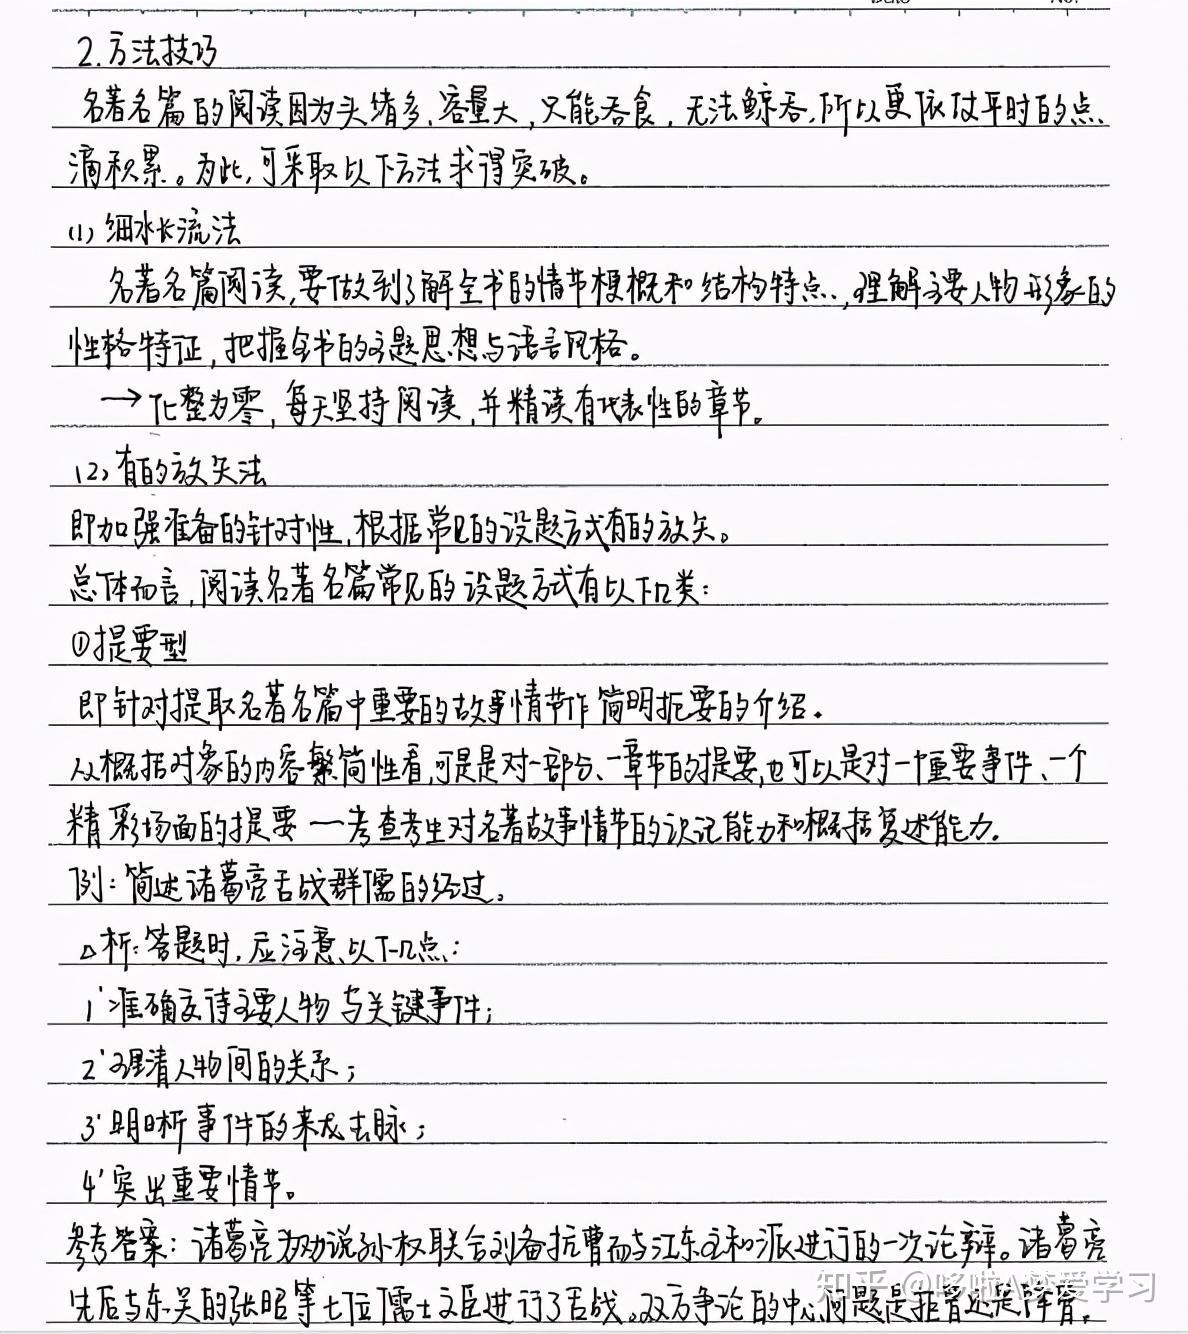 No.
2.方法技巧
名著名篇的阅读因为头绪多、容量大，只能吞食，无法鲸吞，所以更依仗平时的点
滴积累。为此，可采取以下方法求得突破。
(1) 细水长流法
名著名篇阅读，要做到了解全书的情节梗概和结构特点，理解主要人物形象的
性格特征，把握全书的主题思想与语言风格。
→化整为零，每天坚持阅读，并精读有代表性的章节。
(2) 有的放矢法
即加强准备的针对性，根据常见的设题方式有的放矢。
总体而言，阅读名著名篇常见的设题方式有以下几类：
①提要型
即针对提取名著名篇中重要的故事情节作简明扼要的介绍。
从概括对象的内容繁简性看，可是是对一部分、一章节的提要，也可以是对一个重要事件、一个
精彩场面的提要 — 考查考生对名著故事情节的识记能力和概括复述能力。
例：简述诸葛亮舌战群儒的经过。
△析：答题时，应注意以下几点：
1' 准确交待主要人物与关键事件；
2' 理清人物间的关系；
3' 明晰事件的来龙去脉；
4' 突出重要情节。
参考答案：诸葛亮为劝说孙权联合刘备抗曹而与江东主和派进行的一次论辩。诸葛亮
先后与东吴的张昭等七位儒士文臣进行了舌战。双方争论的中心问题是拒曹还是降曹。
知乎 @哆啦A梦爱学习